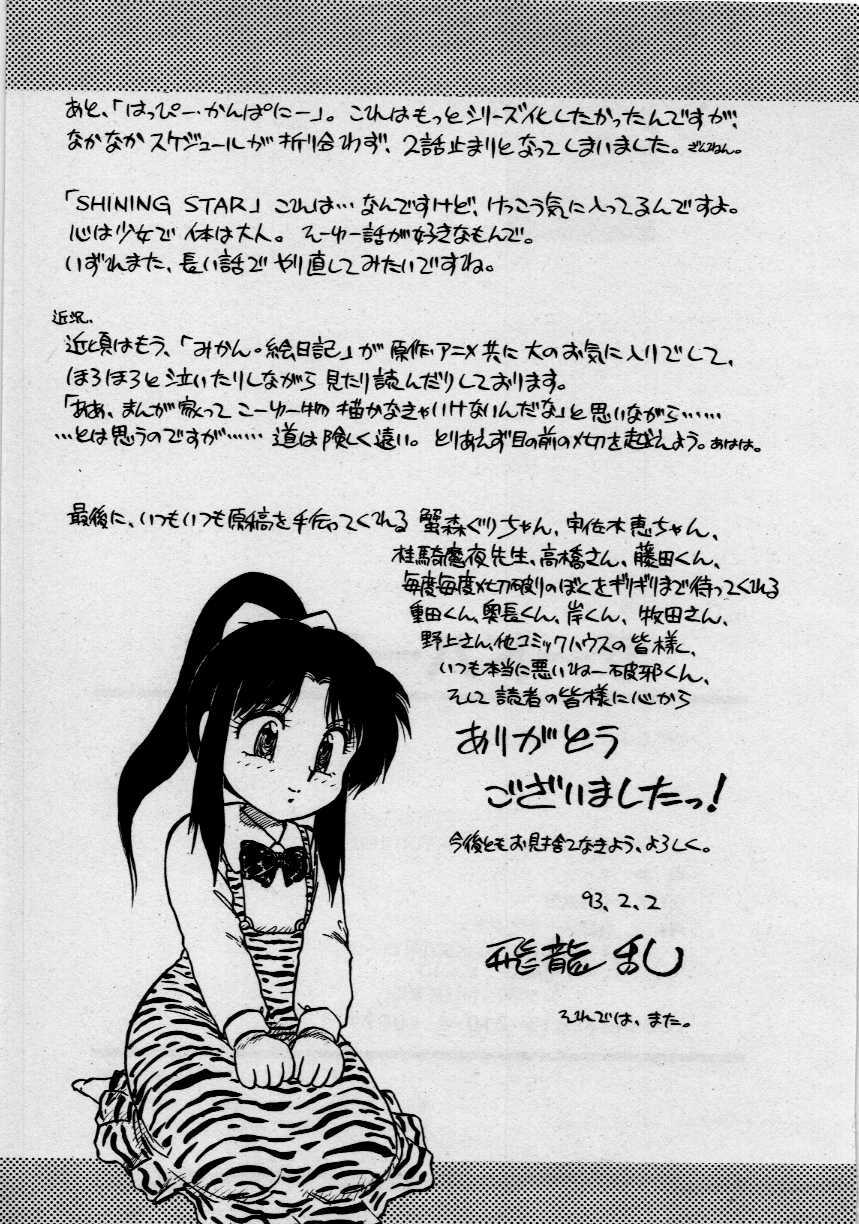 あと、「はっぴー・かんぱにー」。これはもっとシリーズ化したかったんですが、
なかなかスケジュールが折り合わず、2話止まりとなってしまいました。ざんねん。
「SHINING STAR」これは…なんですけど、けっこう気に入ってるんですよ。
心は少女で体は大人。そーゆー話が好きなもんで。
いずれまた、長い話でやり直してみたいですね。
近況、
近頃はもう、「みかん・絵日記」が原作・アニメ共に大のお気に入りでして、
ほろほろと泣いたりしながら見たり読んだりしております。
「ああ、まんが家ってこーゆー物描かなきゃいけないんだな」と思いながら……
…とは思うのですが……道は険しく遠い。とりあえず目の前の〆切を越えよう。あはは。
最後に、いつもいつも原稿を手伝ってくれる蟹森ぐりちゃん、宇佐木恵ちゃん、
桂騎魔夜先生、高橋さん、藤田くん、
毎度毎度〆切破りのぼくをギリギリまで待ってくれる
重田くん、奥長くん、岸くん、牧田さん、
野上さん、他コミックハウスの皆様、
いつも本当に悪いねー破邪くん、
そして読者の皆様に心から
ありがとう
ございましたっ!
今後ともお見捨てなきよう、よろしく。
93.2.2
飛龍 乱
それでは、また。